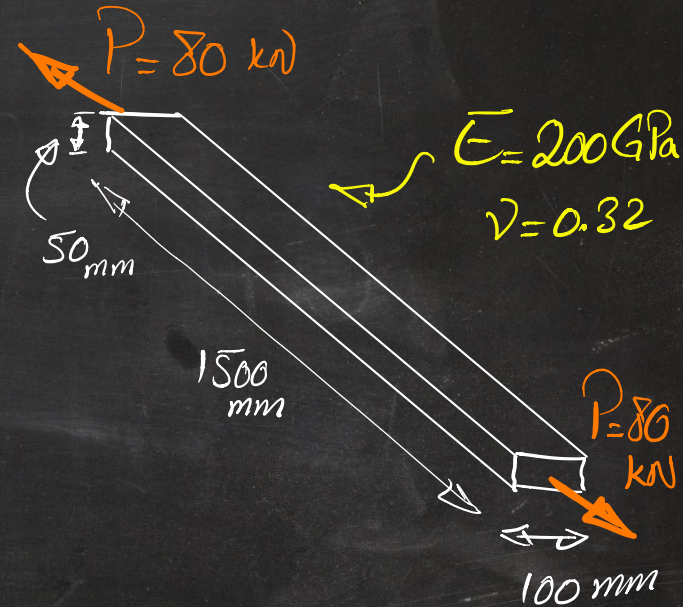 P=80 kN
E=200GPa
ν=0.32
50 mm
1500
mm
P=80
kN
100 mm